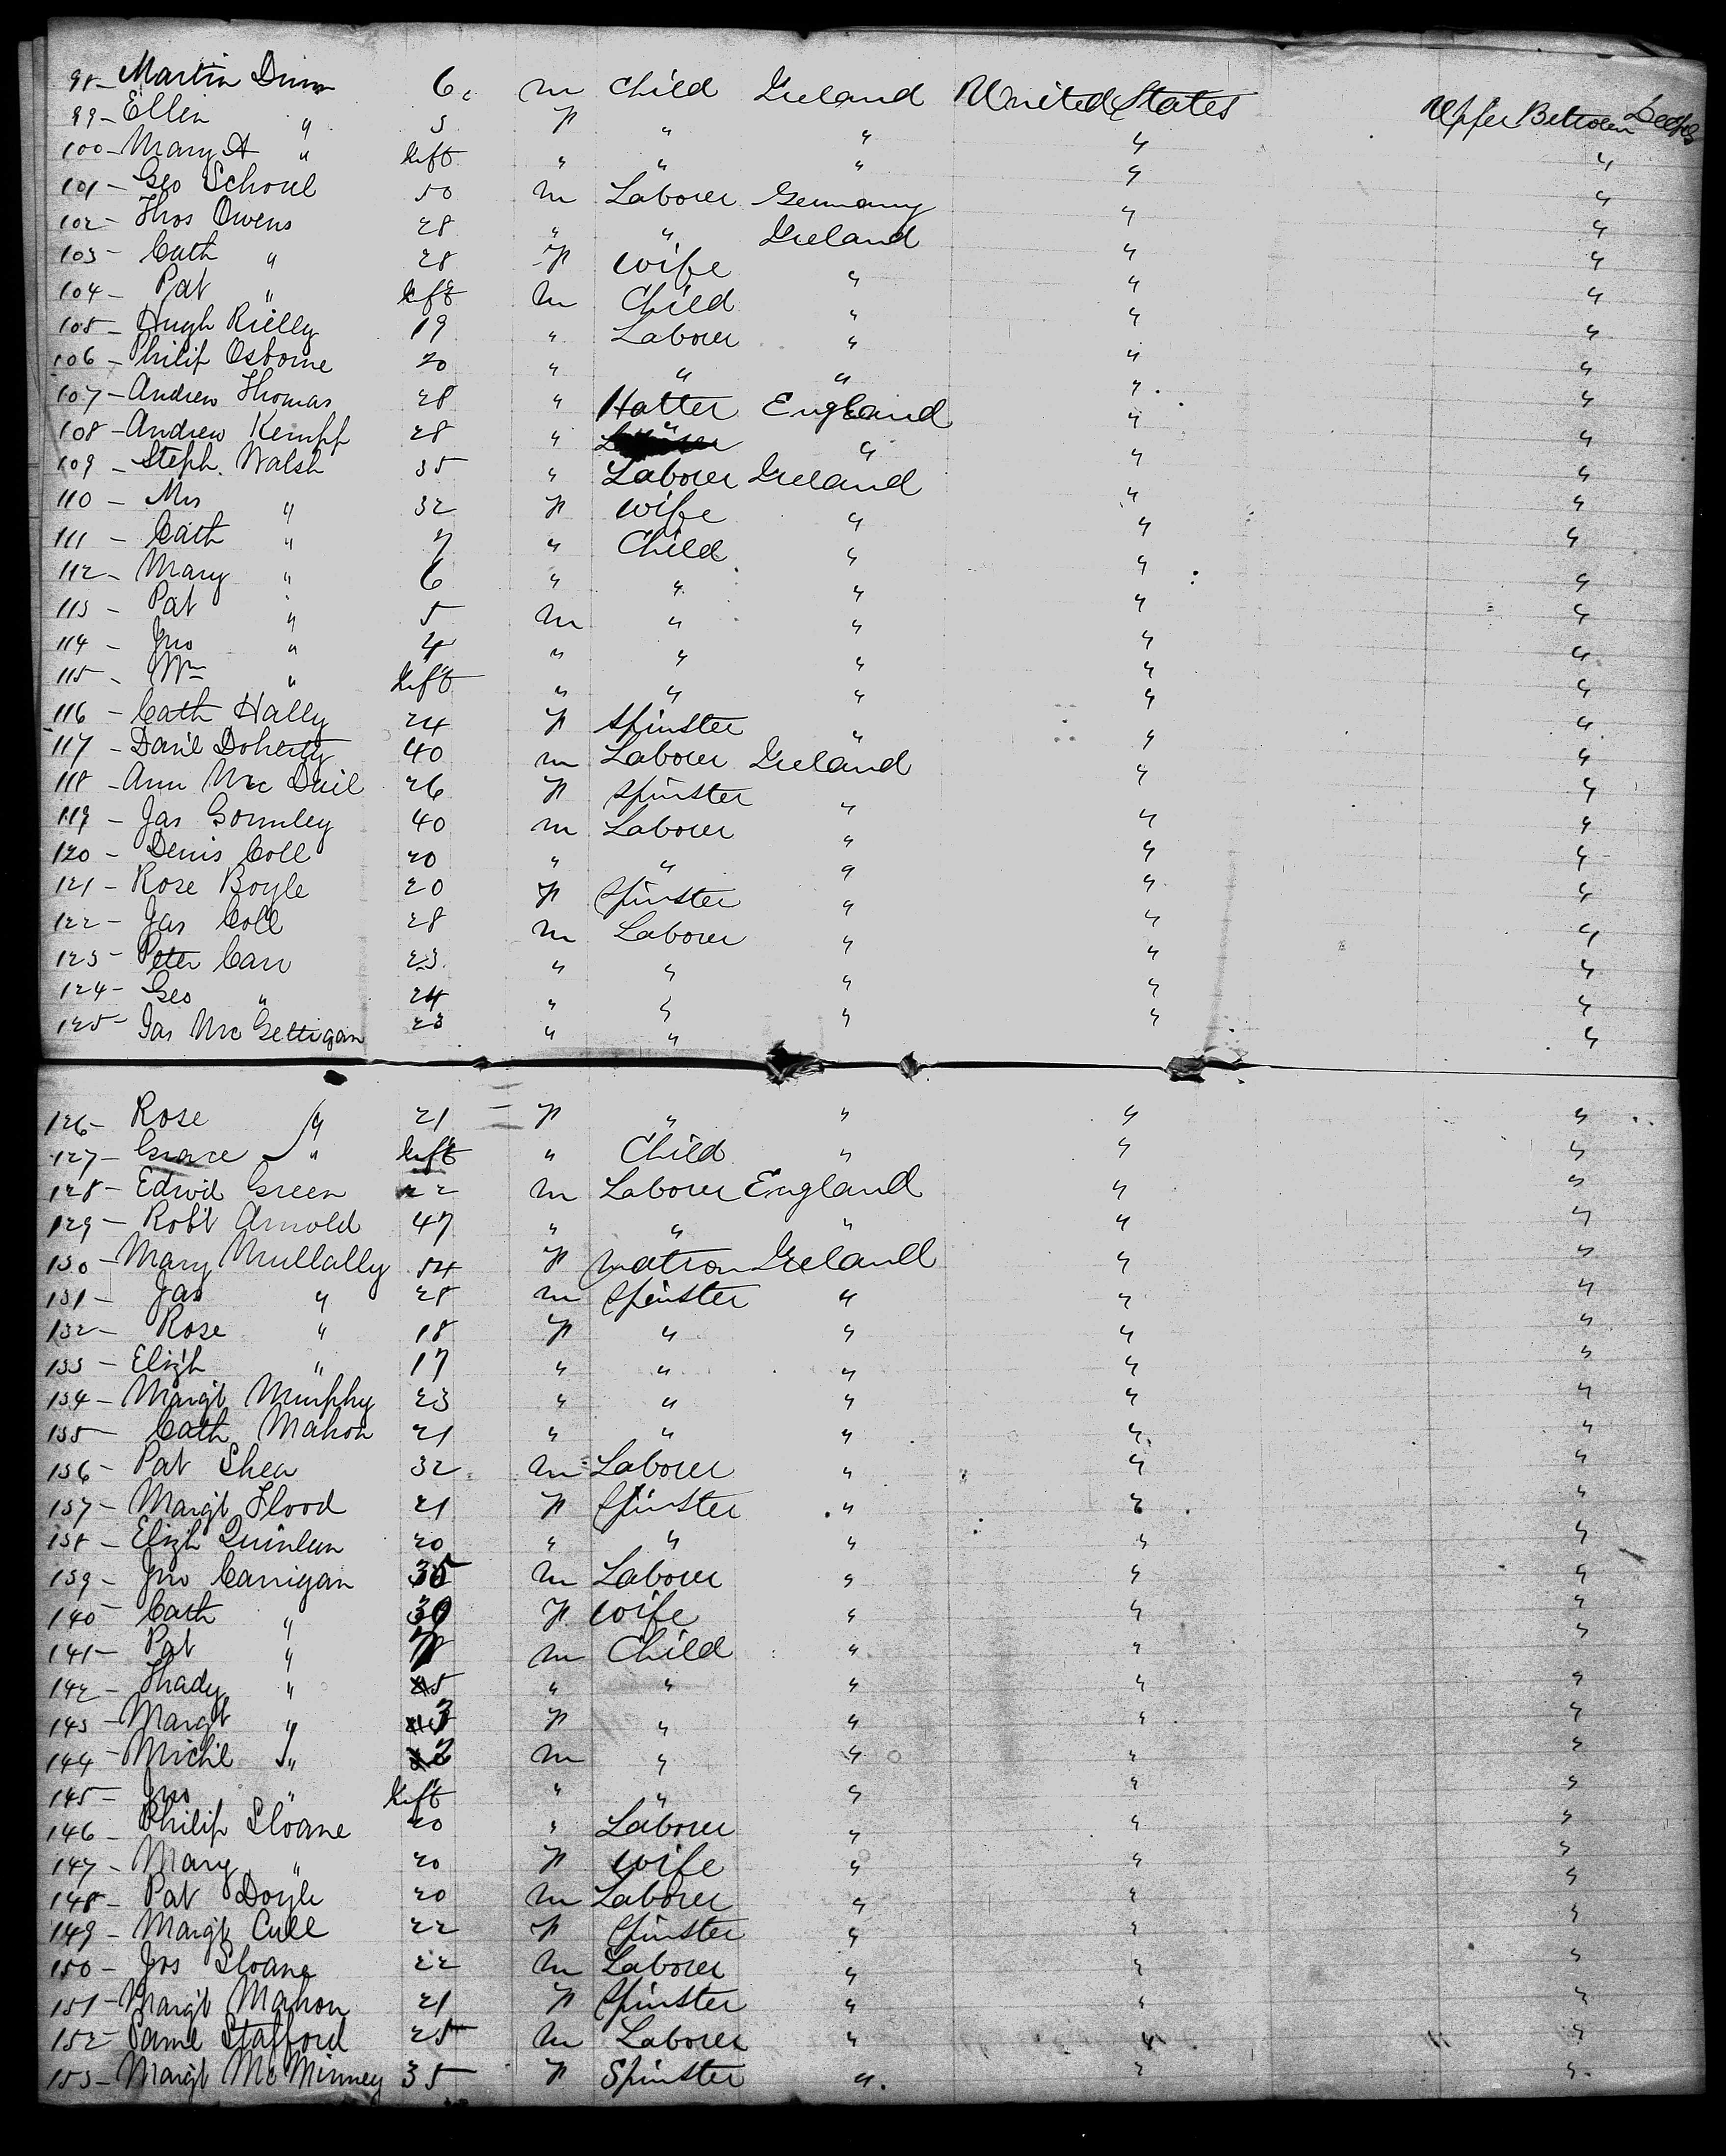 98- Martin Dunn 6 m Child Ireland United States Upper Between Decks
99- Ellen " 3 F " " " "
100- Mary A " Inft " " " " "
101- Geo Schoul 50 m Laborer Germany " "
102- Thos Owens 28 " " Ireland " "
103- Cath " 28 F Wife " " "
104- Pat " Inft m Child " " "
105- Hugh Rielly 19 " Laborer " " "
106- Philip Osborne 20 " " " " "
107- Andrew Thomas 28 " Hatter England " "
108- Andrew Kempf 28 " " " " "
109- Steph. Walsh 35 " Laborer Ireland " "
110- Mrs " 32 F Wife " " "
111- Cath " 7 " Child " " "
112- Mary " 6 " " " " "
113- Pat " 5 m " " " "
114- Jno " 4 " " " " "
115- Wm " Inft " " " " "
116- Cath Hally 24 F Spinster " " "
117- Danl Doherty 40 m Laborer Ireland " "
118- Ann Mc Duil 26 F Spinster " " "
119- Jas Gormley 40 m Laborer " " "
120- Denis Coll 20 " " " " "
121- Rose Boyle 20 F Spinster " " "
122- Jas Coll 28 m Laborer " " "
123- Peter Carr 23 " " " " "
124- Geo " 24 " " " " "
125- Jas Mc Gettigan 23 " " " " "
126- Rose " 21 F " " " "
127- Grace " Inft " Child " " "
128- Edwd Green 22 m Laborer England " "
129- Robt Arnold 47 " " " " "
130- Mary Mullally 54 F Matron Ireland " "
131- Jas " 28 m Spinster " " "
132- Rose " 18 F " " " "
133- Elizh " 17 " " " " "
134- Margt Murphy 23 " " " " "
135- Cath Mahon 21 " " " " "
136- Pat Shea 32 m Laborer " " "
137- Margt Flood 21 F Spinster " " "
138- Elizh Quinlan 20 " " " " "
139- Jno Carrigan 35 m Laborer " " "
140- Cath " 30 F Wife " " "
141- Pat " 7 m Child " " "
142- Thady " 5 " " " " "
143- Margt " 3 F " " " "
144- Michl " 2 m " " " "
145- Jno " Inft " " " " "
146- Philip Sloane 20 " Laborer " " "
147- Mary " 20 F Wife " " "
148- Pat Doyle 20 m Laborer " " "
149- Margt Cull 22 F Spinster " " "
150- Jos Sloane 22 m Laborer " " "
151- Margt Mahon 21 F Spinster " " "
152- Saml Stafford 25 m Laborer " " "
153- Margt Mc Minney 35 F Spinster " " "